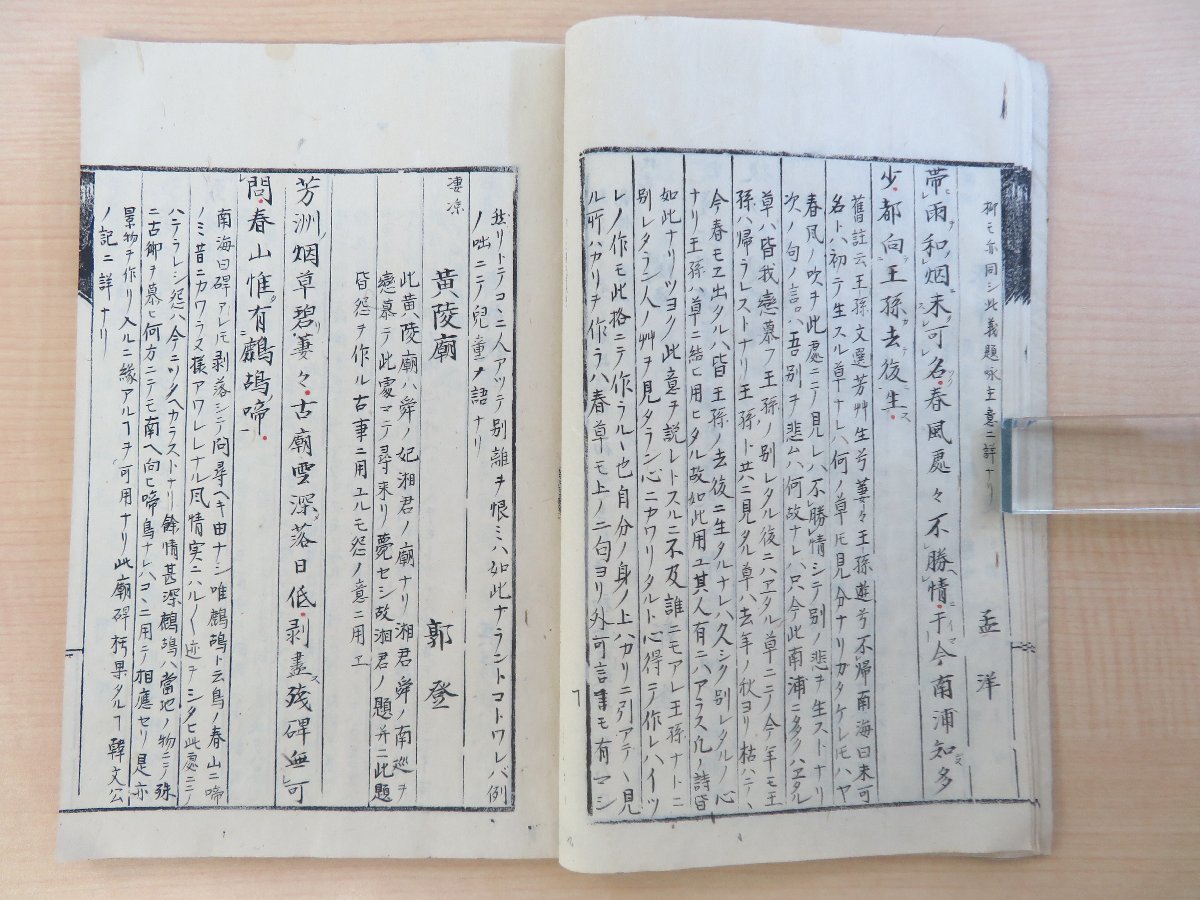 柳モ亦同シ此義題咏主意ニ詳ナリ
孟洋
帶雨和烟未可名春風處々不勝情于今南浦知多
少都向王孫去後生
舊註云王孫文選芳艸生兮萋々王孫遊兮不歸南海曰未可
名トハ初テ生スル草ナレハ何ノ草ㇳモ見分ナリカタケレモハヤ
春風ノ吹ヲ此處ニテ見レハ不勝情シテ別ノ悲ヲ生ストナリ
次ノ句ノ言ハ吾別ヲ悲ムハ何故ナレハ只今此南浦ニ多クハヱタル
草ハ皆我戀慕フ王孫ノ別レタル後ニハヱタル草ニテ今年モ王
孫ハ帰ラレストナリ王孫ト共ニ見タル草ハ去年ノ秋ヨリ枯ハテヽ
今春モヱ出タルハ皆王孫ノ去後ニ生タルナレハ久シク別レタルノ心
ナリ王孫ハ草ニ結ヒ用ヒタル故如此用ユ其人有ニハアラス凡ノ詩皆
如此ナリツヨク此意ヲ説レトスルニ不及誰ニモアレ王孫ナトニ
別レタラン人ノ艸ヲ見タラン心ニカワリタルト心得テ作レハイツ
レノ作モ此格ニテ作ラルヽ也自分ノ身ノ上ハカリニ引アテヽ見
ル所ハカリヲ作ラハ春草モ上ノ二句ヨリ外可言事モ有マシ
愁リトテコヽニ人アツテ別離ヲ恨ミハ如此ナラントコトワレバ例
ノ咄ニテ兒童ノ語ナリ
凄凉
黃陵廟　郭登
此黄陵廟ハ舜ノ妃湘君ノ廟ナリ湘君舜ノ南巡ヲ
戀慕テ此處マテ尋来リ薨セシ故湘君ノ題并ニ此題
皆怨ヲ作ル古事ニ用ユルモ怨ノ意ニ用ヱ
芳洲烟草碧萋々古廟雲深落日低剥盡残碑無可
問春山惟有鷓鴣啼
南海曰碑アレモ剥落シテ問尋ヘキ由ナシ唯鷓鴣ト云鳥ノ春山ニ啼
ノミ昔ニカワラヌ様アワレナル風情実ニハルノ〳〵迹ヲシタヒ此處ニテ
ハテラレシ怨ハ今ニツクヘカラストナリ餘情甚深鷓鴣ハ當地ノ物ニテ殊
ニ古郷ヲ慕ヒ何方ニテモ南ヘ向ヒ啼鳥ナレハコヽニ用テ相應セリ是亦
景物ヲ作リ入ルニ縁アルヿヲ可用ナリ此廟碑朽果タルヿ韓文公
ノ記ニ詳ナリ